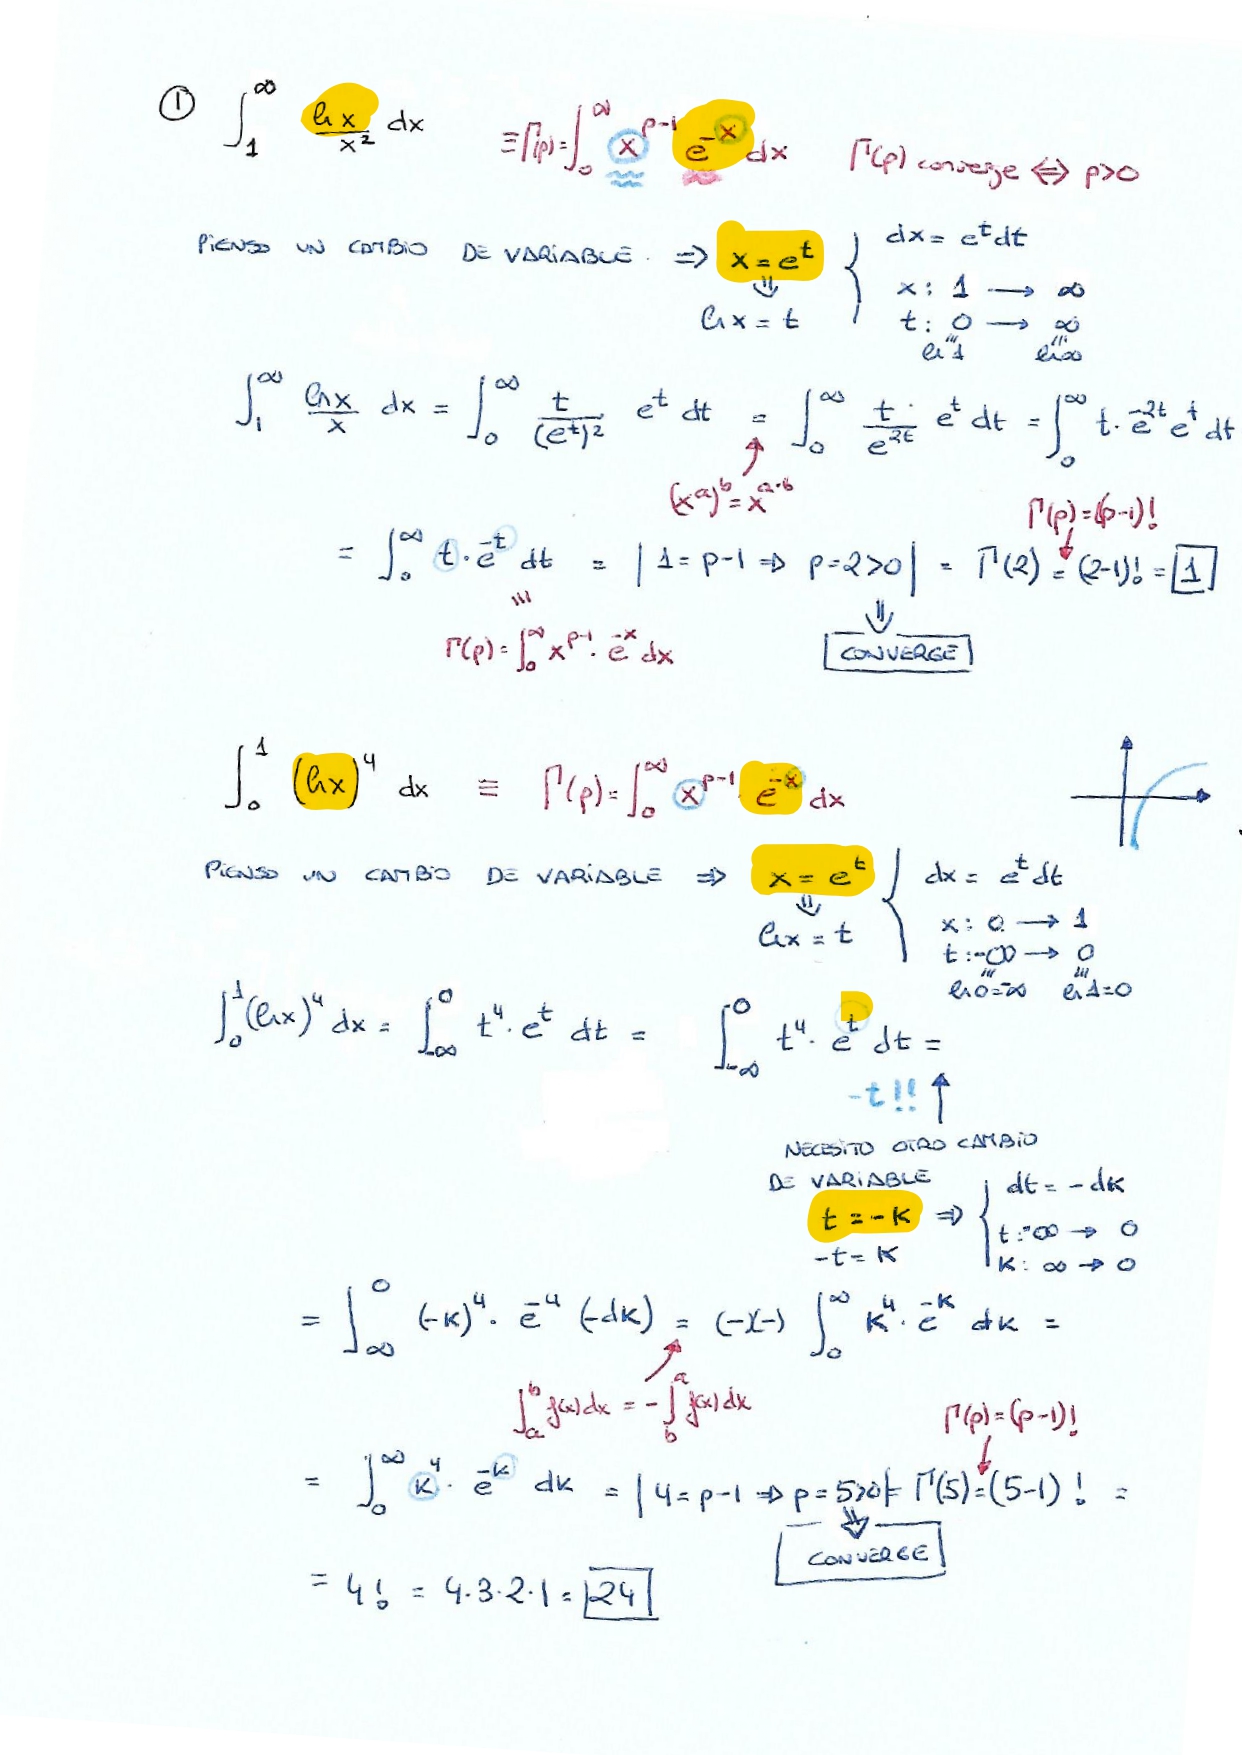 ① ∫₁^∞ ln x / x² dx ≡ Γ(p) = ∫₀^∞ x^(p-1) e^(-x) dx Γ(p) converge ⇔ p>0
PIENSO UN CAMBIO DE VARIABLE. ⇒ x = e^t { dx = e^t dt
⇓ x: 1 → ∞
ln x = t t: 0 → ∞
ln 1 ln ∞
∫₁^∞ ln x / x dx = ∫₀^∞ t / (e^t)² e^t dt = ∫₀^∞ t / e^(2t) · e^t dt = ∫₀^∞ t · e^(-2t) e^t dt
(x^a)^b = x^(a·b) Γ(p) = (p-1)!
= ∫₀^∞ t · e^(-t) dt = | 1 = p-1 ⇒ p = 2>0 | = Γ(2) = (2-1)! = 1
Γ(p) = ∫₀^∞ x^(p-1) · e^(-x) dx CONVERGE
∫₀^1 (ln x)^4 dx ≡ Γ(p) = ∫₀^∞ x^(p-1) e^(-x) dx
PIENSO UN CAMBIO DE VARIABLE ⇒ x = e^t { dx = e^t dt
⇓ x: 0 → 1
ln x = t t: -∞ → 0
ln 0 = -∞ ln 1 = 0
∫₀^1 (ln x)^4 dx = ∫_-∞^0 t^4 · e^t dt = ∫_-∞^0 t^4 · e^t dt =
-t!! ↑
NECESITO OTRO CAMBIO
DE VARIABLE
t = -K ⇒ { dt = -dK
-t = K t: -∞ → 0
K: ∞ → 0
= ∫_∞^0 (-K)^4 · e^(-4) (-dK) = (-)(-) ∫₀^∞ K^4 · e^(-K) dK =
∫_a^b f(x) dx = - ∫_b^a f(x) dx Γ(p) = (p-1)!
= ∫₀^∞ K^4 · e^(-K) dK = | 4 = p-1 ⇒ p = 5>0 | = Γ(5) = (5-1)! =
CONVERGE
= 4! = 4·3·2·1 = 24